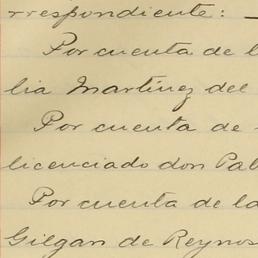 rrespondiente:
Por cuenta de l
lia Martínez del
Por cuenta de
licenciado don Pab
Por cuenta de la
Gilgan de Reynos